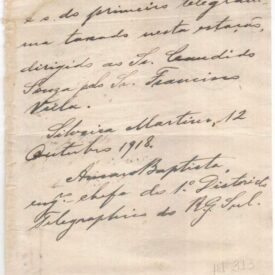 e s. do primeiro telegram-
ma taxado nesta estação,
dirigido ao Sr. Candido
Souza pelo Sr. Francisco
Villa.
Silveira Martins, 12
Outubro 1918.
Amaro Baptista,
engº chefe do 1º Districto
Telegraphico do R. G. Sul.